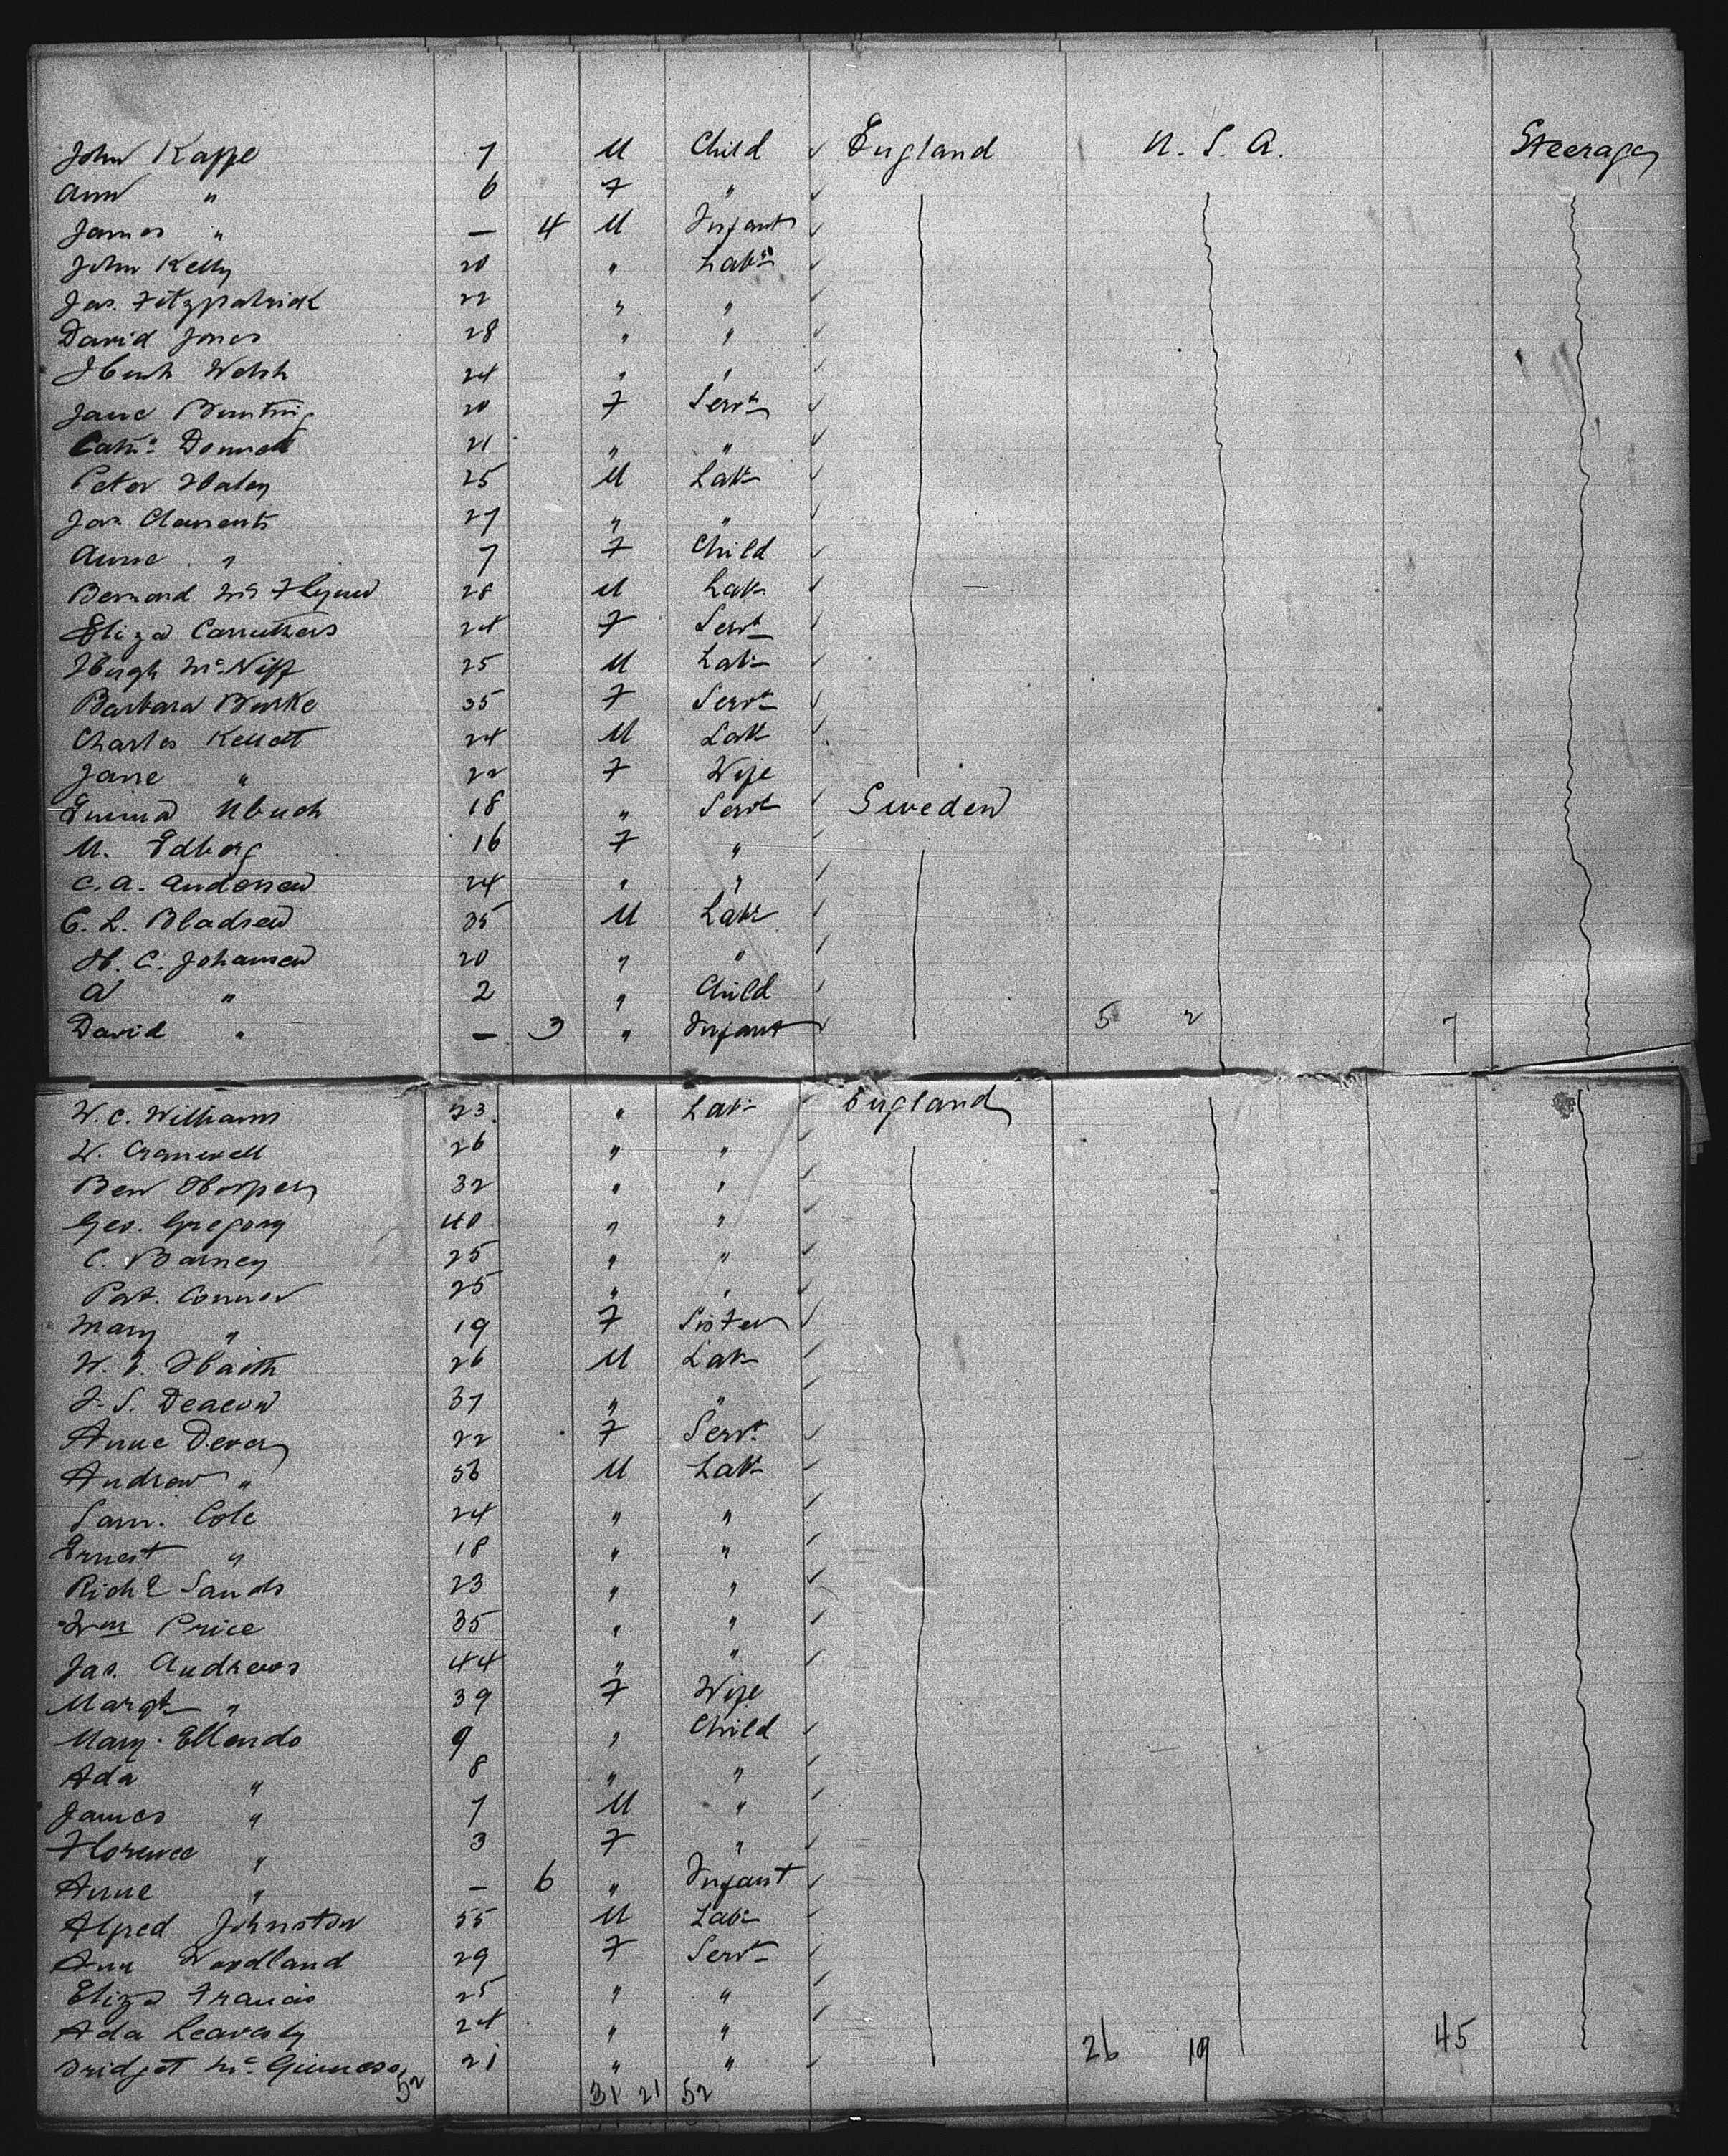 John Kappe 7 M Child ✓ England U. S. A. Steerage
Ann " 6 F " ✓
James " — 4 M Infant ✓
John Kelly 20 " Labr ✓
Jas. Fitzpatrick 22 " " ✓
David Jones 28 " " ✓
Hugh Welsh 24 " " ✓
Jane Bunting 20 F Servt ✓
Cath: Donnell 21 " " ✓
Peter Haley 25 M Labr ✓
Jas. Clements 27 " " ✓
Anne " 7 F Child ✓
Bernard Mc Flynn 28 M Labr ✓
Eliza Carruthers 24 F Servt ✓
Hugh Mc Niff 25 M Labr ✓
Barbara Burke 35 F Servt ✓
Charles Kellett 24 M Labr ✓
Jane " 22 F Wife
Emma 18 " Servt ✓ Sweden
M. Edborg 16 F " ✓
C. A. Andersen 24 " " ✓
C. L. Bladsen 35 M Labr ✓
H. C. Johansen 20 " " ✓
A " 2 " Child ✓
David " — 3 " Infant ✓ 5 2 7
W. C. Williams 23 " Labr ✓ England
W. Cranwell 26 " " ✓
Ben Horpen 32 " " ✓
Geo. Gregory 40 " " ✓
C. Barney 25 " " ✓
Pat. Connor 25 " " ✓
Mary " 19 F Sister ✓
W. J. Haith 26 M Labr ✓
J. S. Deacon 37 " " ✓
Anne Dever 22 F Servt ✓
Andrew " 56 M Labr ✓
Sam. Cole 24 " " ✓
Ernest " 18 " " ✓
Richd Sands 23 " " ✓
Wm Price 35 " " ✓
Jas. Andrews 44 " " ✓
Margt " 39 F Wife
Mary Ellendo 9 " Child ✓
Ada " 8 " " ✓
James " 7 M " ✓
Florence " 3 F " ✓
Anne " — 6 " Infant ✓
Alfred Johnston 55 M Labr ✓
Ann Woodland 29 F Servt ✓
Eliza Francis 25 " " ✓
Ada Leavesly 24 " " ✓ 26 19 45
Bridget Mc Guiness 21 " " ✓
52 31 21 52